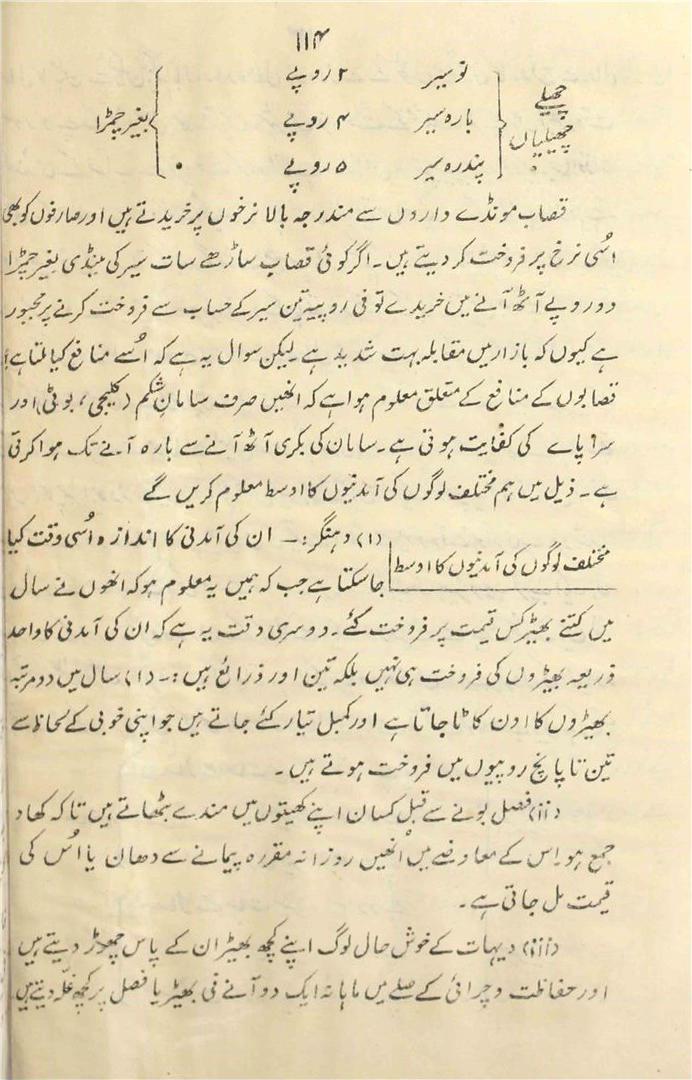 ۱۱۴
چھیلے چھیلیاں { نو سیر ۲ روپے } بغیر چمڑا
بارہ سیر ۴ روپے
پندرہ سیر ۵ روپے
قصاب مونڈے داروں سے مندرجہ بالا نرخوں پر خریدتے ہیں اور صارفوں کو بھی
اسُی نرخ پر فروخت کر دیتے ہیں۔ اگر کوئی قصاب ساڑھے سات سیر کی مینڈی بغیر چمڑا
دو روپے آٹھ آنے میں خریدے تو فی روپیہ تین سیر کے حساب سے فروخت کرنے پر مجبور
ہے کیوں کہ بازار میں مقابلہ بہت شدید ہے۔ لیکن سوال یہ ہے کہ اُسے منافع کیا ملتا ہے؟
قصابوں کے منافع کے متعلق معلوم ہوا ہے کہ انھیں صرف سامانِ شکم (کلیجی، بوٹی) اور
سرا پاے کی کفایت ہوتی ہے۔ سامان کی بکری آٹھ آنے سے بارہ آنے تک ہوا کرتی
ہے۔ ذیل میں ہم مختلف لوگوں کی آمدنیوں کا اوسط معلوم کریں گے
مختلف لوگوں کی آمدنیوں کا اوسط
(۱) دہنگر:۔ ان کی آمدنی کا اندازہ اُسی وقت کیا
جا سکتا ہے جب کہ ہمیں یہ معلوم ہو کہ انھوں نے سال
میں کتنے بھیڑ کس قیمت پر فروخت کئے۔ دوسری دقت یہ ہے کہ ان کی آمدنی کا واحد
ذریعہ بھیڑوں کی فروخت ہی نہیں بلکہ تین اور ذرائع ہیں:۔ (۱) سال میں دو مرتبہ
بھیڑوں کا اون کاٹا جاتا ہے اور کمبل تیار کئے جاتے ہیں جو اپنی خوبی کے لحاظ سے
تین تا پانچ روپیوں میں فروخت ہوتے ہیں۔
(ii) فصل بونے سے قبل کسان اپنے کھیتوں میں مندے بٹھاتے ہیں تاکہ کھاد
جمع ہو۔ اس کے معاوضے میں اُنھیں روزانہ مقررہ پیمانے سے دھان یا اُس کی
قیمت مل جاتی ہے۔
(iii) دیہات کے خوش حال لوگ اپنے کچھ بھیڑ ان کے پاس چھوڑ دیتے ہیں
اور حفاظت و چرائی کے صلے میں ماہانہ ایک دو آنے فی بھیڑ یا فصل پر کچھ غلّہ دیتے ہیں